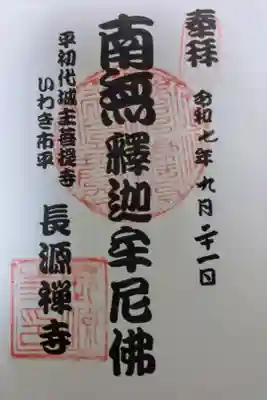 奉拝
令和七年 九月二十一日
南無釋迦牟尼佛
平初代城主菩提寺
いわき市平
長源禅寺